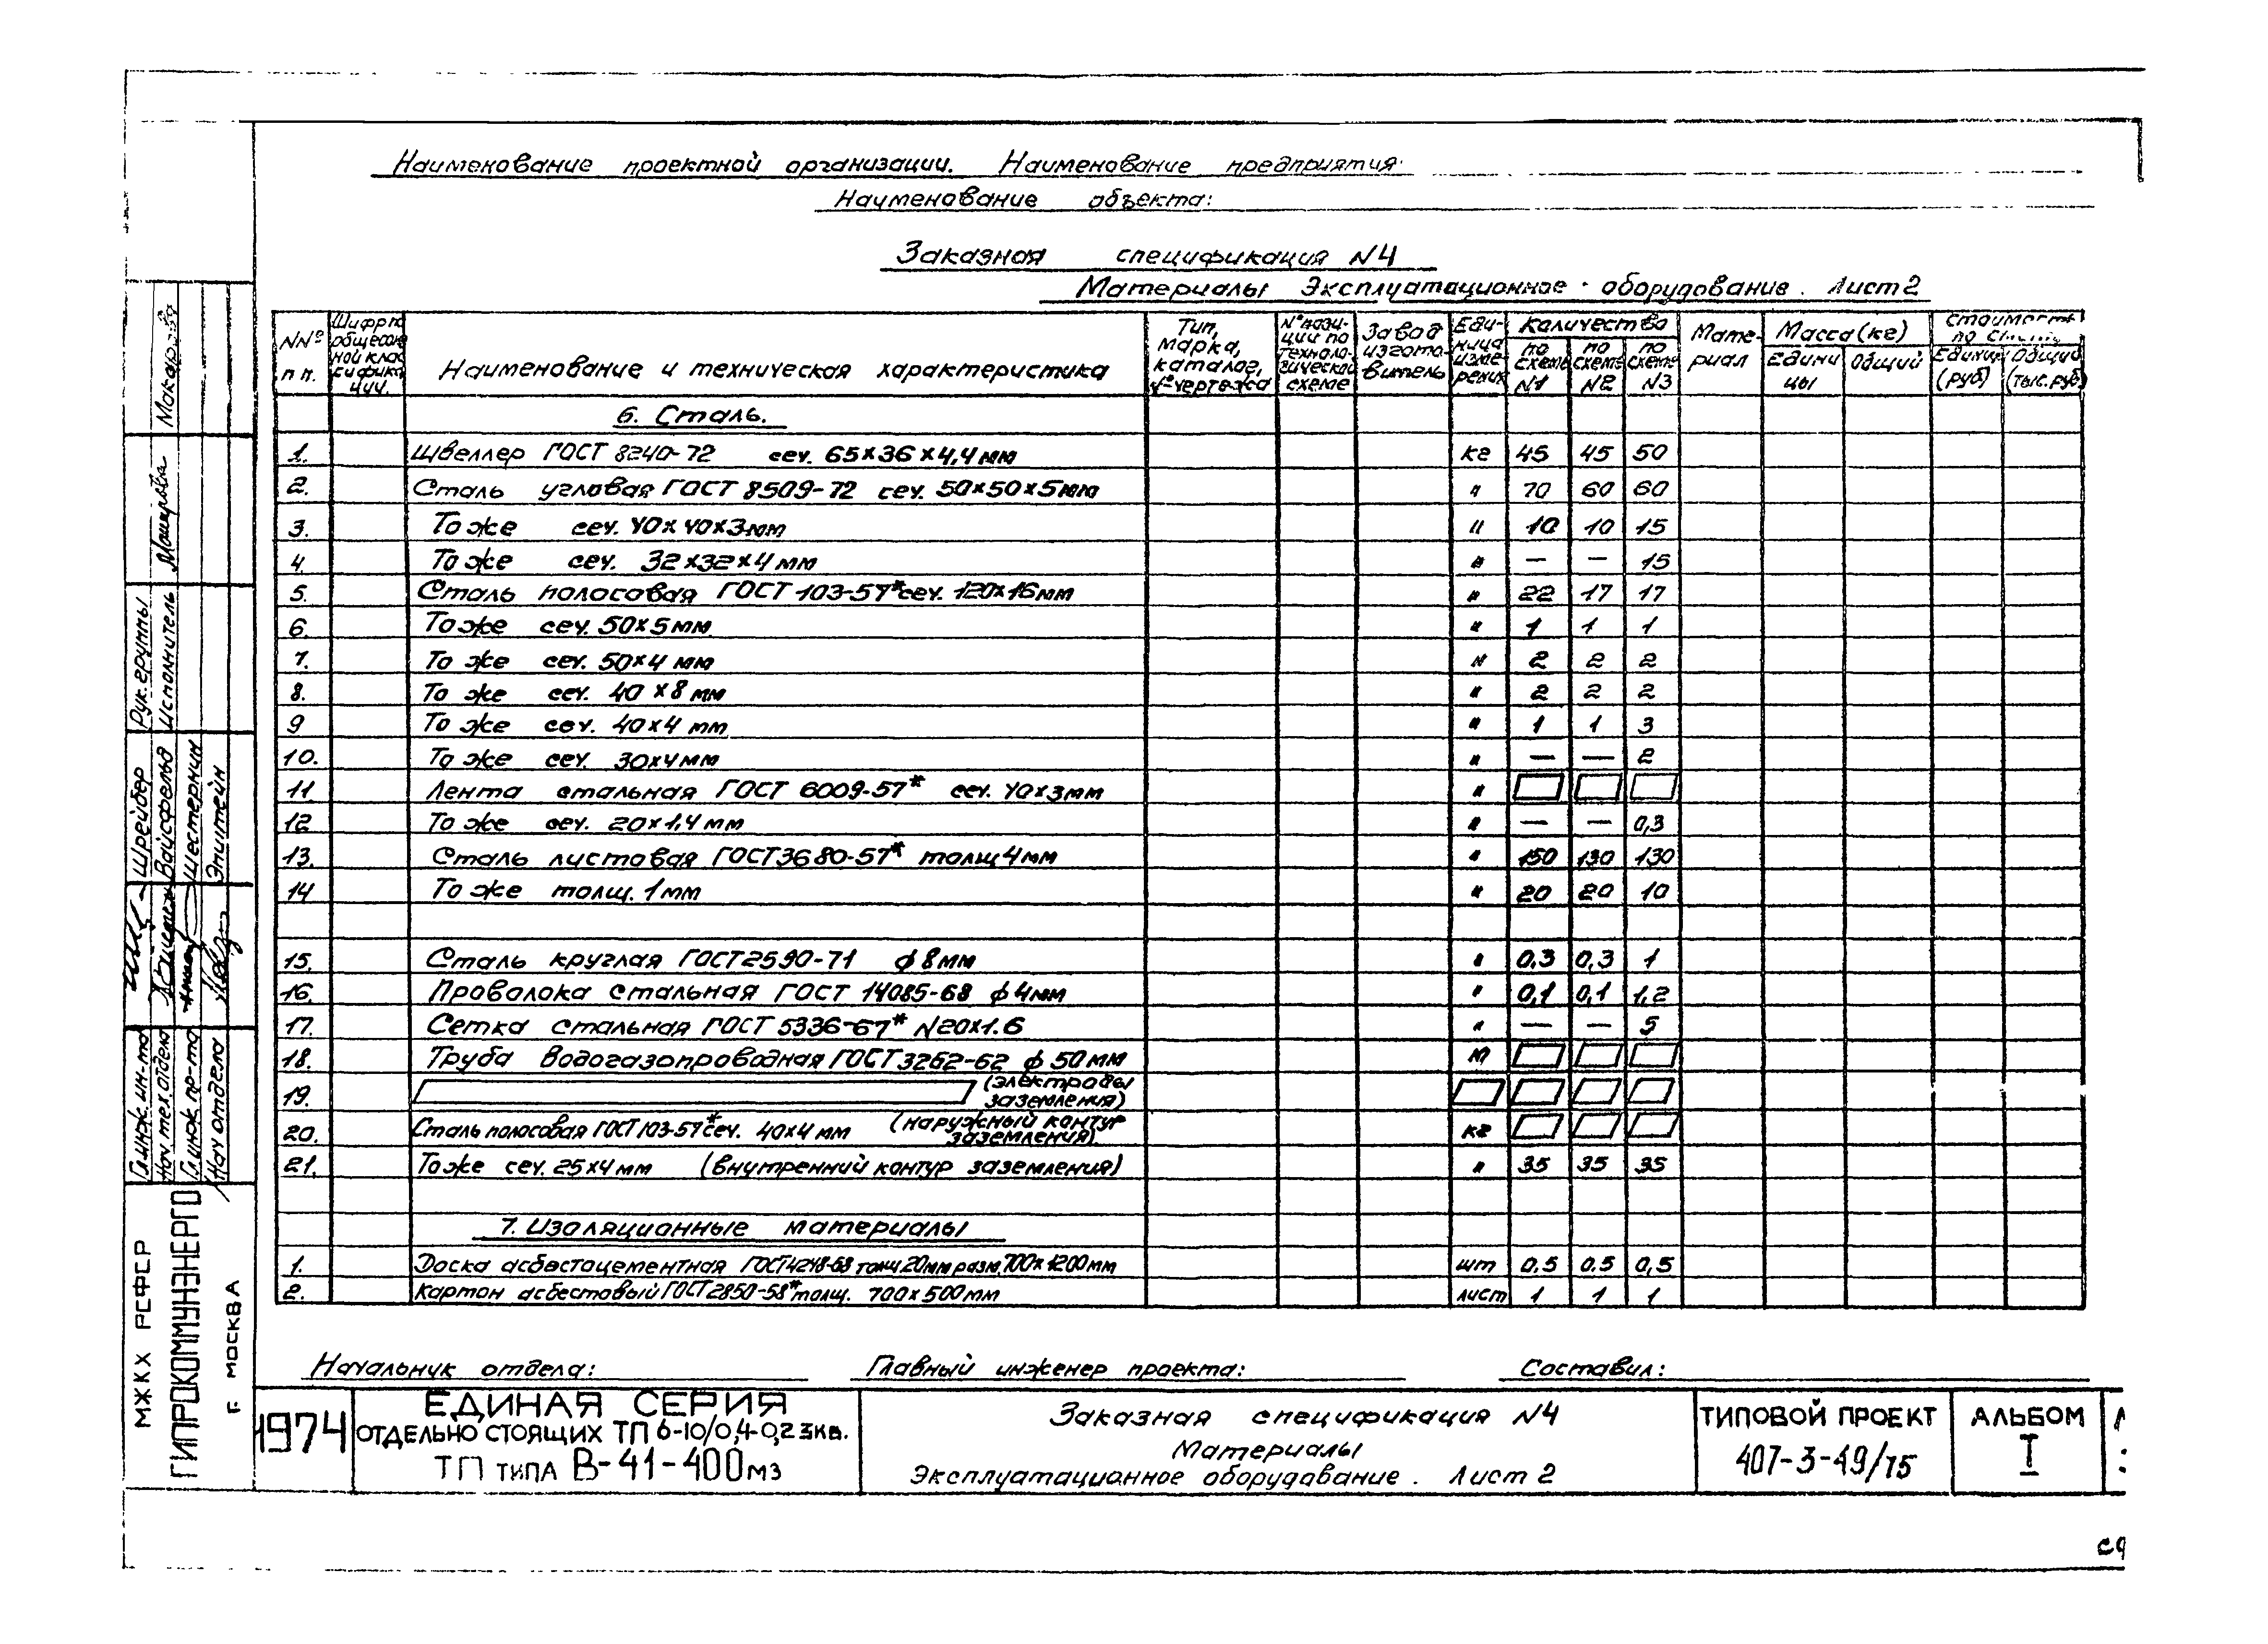 Наименование проектной организации. Наименование предприятия:
Наименование объекта:
Заказная спецификация N4
Материалы Эксплуатационное оборудование. Лист 2
NNº п п. Шифр по общесоюзной классификации. Наименование и техническая характеристика Тип, марка, каталог, № чертежа N° позиции по технологической схеме Завод изготовитель Единица измерения Количество по схеме N1 по схеме N2 по схеме N3 Материал Масса (кг) Единицы Общий Стоимость по смете Единиц (руб) Общий (тыс. руб)
6. Сталь.
1. Швеллер ГОСТ 8240-72 сеч. 65×36×4,4 мм кг 45 45 50
2. Сталь угловая ГОСТ 8509-72 сеч. 50×50×5 мм " 70 60 60
3. То же сеч. 40×40×3 мм " 10 10 15
4. То же сеч. 32×32×4 мм " — — 15
5. Сталь полосовая ГОСТ 103-57* сеч. 120×16 мм " 22 17 17
6. То же сеч. 50×5 мм " 1 1 1
7. То же сеч. 50×4 мм " 2 2 2
8. То же сеч. 40×8 мм " 2 2 2
9 То же сеч. 40×4 мм " 1 1 3
10. То же сеч. 30×4 мм " — — 2
11 Лента стальная ГОСТ 6009-57* сеч. 40×3 мм "
12 То же сеч. 20×1,4 мм " — — 0,3
13. Сталь листовая ГОСТ 3680-57* толщ 4 мм " 150 130 130
14 То же толщ. 1 мм " 20 20 10
15. Сталь круглая ГОСТ 2590-71 ф 8 мм " 0,3 0,3 1
16. Проволока стальная ГОСТ 14085-68 ф 4 мм " 0,1 0,1 1,2
17. Сетка стальная ГОСТ 5336-67* N20×1.6 " — — 5
18. Труба водогазопроводная ГОСТ 3262-62 ф 50 мм м
19. (электроды заземления)
20. Сталь полосовая ГОСТ 103-57* сеч. 40×4 мм (наружный контур заземления). кг
21. То же сеч. 25×4 мм (внутренний контур заземления) " 35 35 35
7. Изоляционные материалы
1. Доска асбестоцементная ГОСТ 4248-68 толщ 20 мм разм. 700×1200 мм шт 0,5 0.5 0,5
2. Картон асбестовый ГОСТ 2850-58* толщ. 700×500 мм лист 1 1 1
Начальник отдела: Главный инженер проекта: Составил:
1974
ЕДИНАЯ СЕРИЯ
ОТДЕЛЬНО СТОЯЩИХ ТП 6-10/0,4-0,23 кв.
ТП ТИПА В-41-400 м3
Заказная спецификация N4
Материалы
Эксплуатационное оборудование. Лист 2
ТИПОВОЙ ПРОЕКТ
407-3-49/75
АЛЬБОМ
I
МЖКХ РСФСР
ГИПРОКОММУНЭНЕРГО
Г. МОСКВА
Гл. инж. ин-та Шрейбер
Нач. тех. отдела Вайсфельд
Гл. инж. пр-та Шестернин
Нач отдела Эпштейн
Рук. группы
Исполнитель